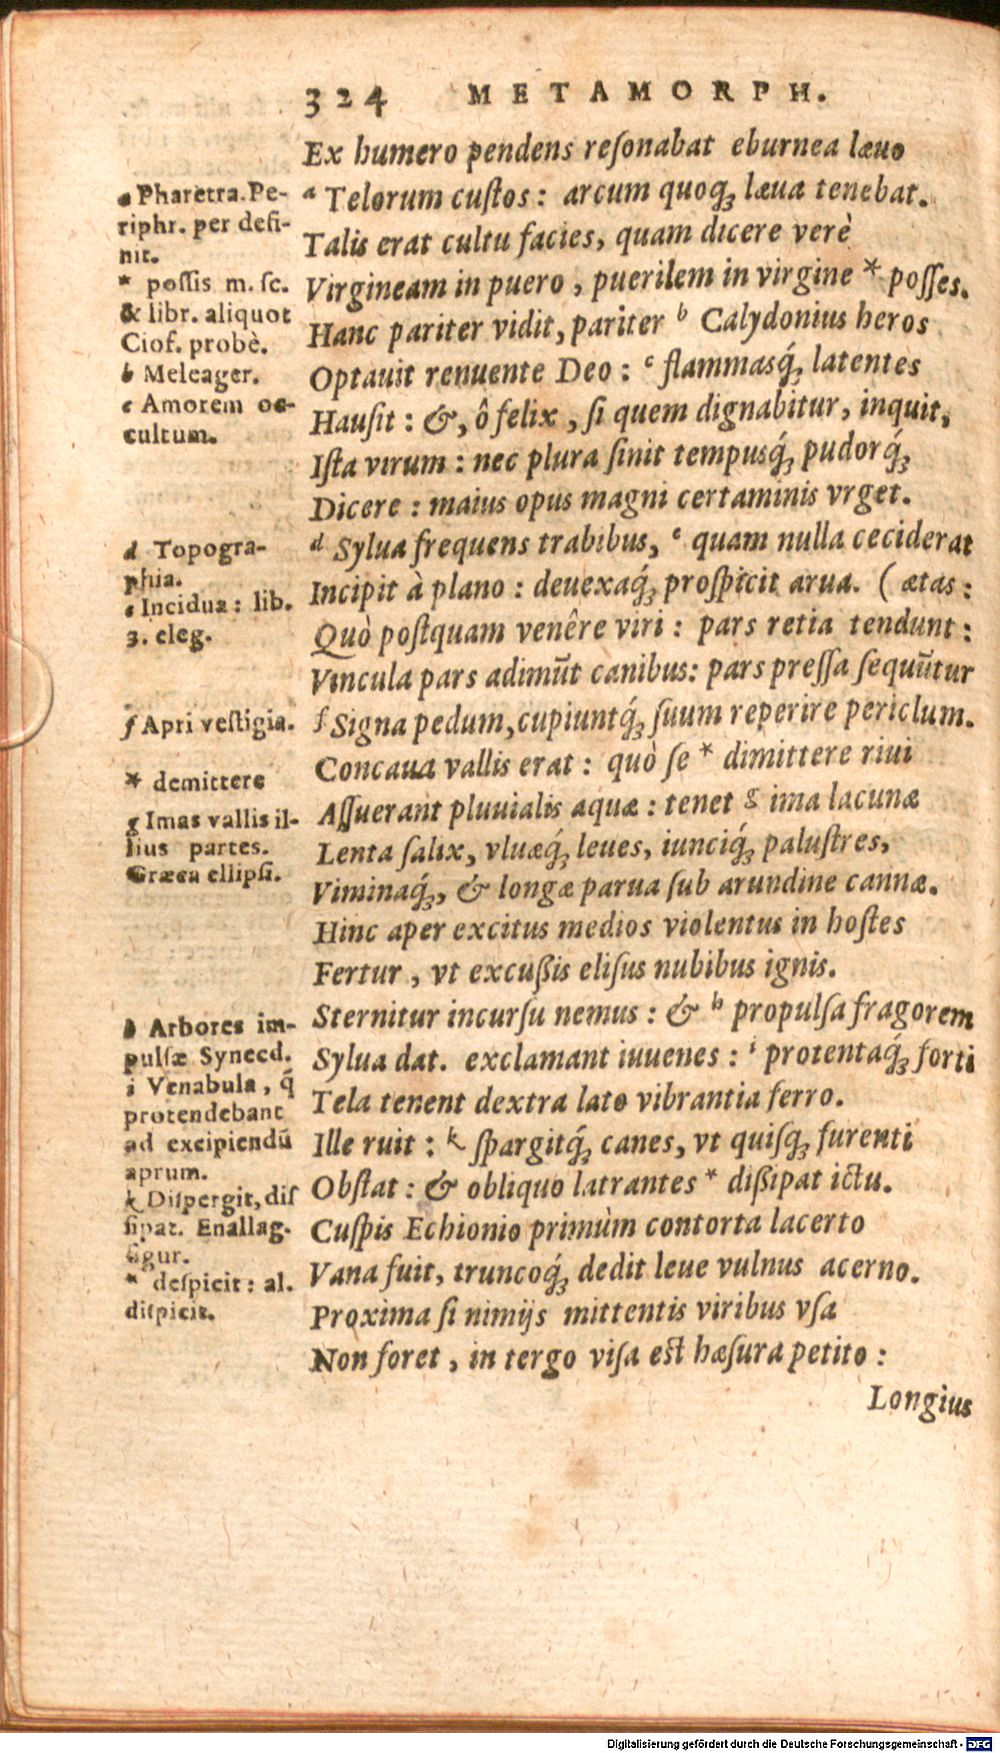 324 METAMORPH.
Ex humero pendens reſonabat eburnea læuo
a Telorum cuſtos: arcum quoq; læua tenebat.
Talis erat cultu facies, quam dicere verè
Virgineam in puero, puerilem in virgine * poſſes.
Hanc pariter vidit, pariter b Calydonius heros
Optauit renuente Deo: c flammasq́; latentes
Hauſit: &, ô felix, ſi quem dignabitur, inquit,
Iſta virum: nec plura ſinit tempusq́; pudorq́;
Dicere: maius opus magni certaminis vrget.
d Sylua frequens trabibus, e quam nulla ceciderat
Incipit à plano: deuexaq́; proſpicit arua. (ætas:
Quò poſtquam venêre viri: pars retia tendunt:
Vincula pars adimūt canibus: pars preſſa ſequūtur
f Signa pedum, cupiuntq́; ſuum reperire periclum.
Concaua vallis erat: quò ſe * dimittere riui
Aſſuerant pluuialis aquæ: tenet g ima lacunæ
Lenta ſalix, vluæq́; leues, iunciq́; paluſtres,
Viminaq́;, & longæ parua ſub arundine cannæ.
Hinc aper excitus medios violentus in hoſtes
Fertur, vt excuſſis eliſus nubibus ignis.
Sternitur incurſu nemus: & h propulſa fragorem
Sylua dat. exclamant iuuenes: i protentaq́; forti
Tela tenent dextra lato vibrantia ferro.
Ille ruit: k ſpargitq́; canes, vt quiſq; furenti
Obſtat: & obliquo latrantes * diſſipat ictu.
Cuſpis Echionio primùm contorta lacerto
Vana fuit, truncoq́; dedit leue vulnus acerno.
Proxima ſi nimijs mittentis viribus vſa
Non foret, in tergo viſa eſt hæſura petito:
Longius
a Pharetra. Pe-
riphr. per defi-
nit.
* poſſis m. ſc.
& libr. aliquot
Ciof. probè.
b Meleager.
c Amorem oc-
cultum.
d Topogra-
phia.
e Incidua: lib.
3. eleg.
f Apri veſtigia.
* demittere
g Imas vallis il-
lius partes.
Græca ellipſi.
h Arbores im-
pulſæ Synecd.
i Venabula, q́
protendebant
ad excipiendū
aprum.
k Diſpergit, diſ
ſipat. Enallag.
figur.
* deſpicit: al.
diſpicit.
Digitalisierung gefördert durch die Deutsche Forschungsgemeinschaft - DFG